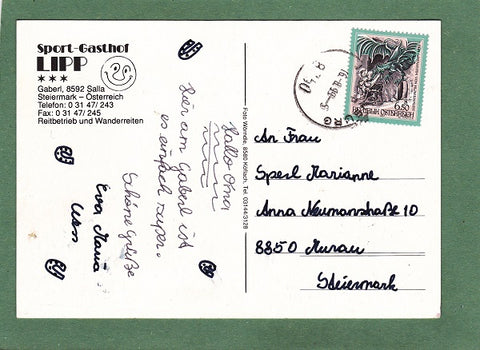 Sport-Gasthof
LIPP
★★★
Gaberl, 8592 Salla
Steiermark – Österreich
Telefon: 0 31 47/ 243
Fax: 0 31 47/ 245
Reitbetrieb und Wanderreiten
Hallo Oma!
Hier am Gaberl ist
es einfach super.
Schöne Grüße
Eva Maria
Foto Womde, 8580 Köflach, Tel. 03144/3128
6.50
REPUBLIK ÖSTERREICH
An Frau
Sperl Marianne
Anna Neumannstraße 10
8850 Murau
Steiermark